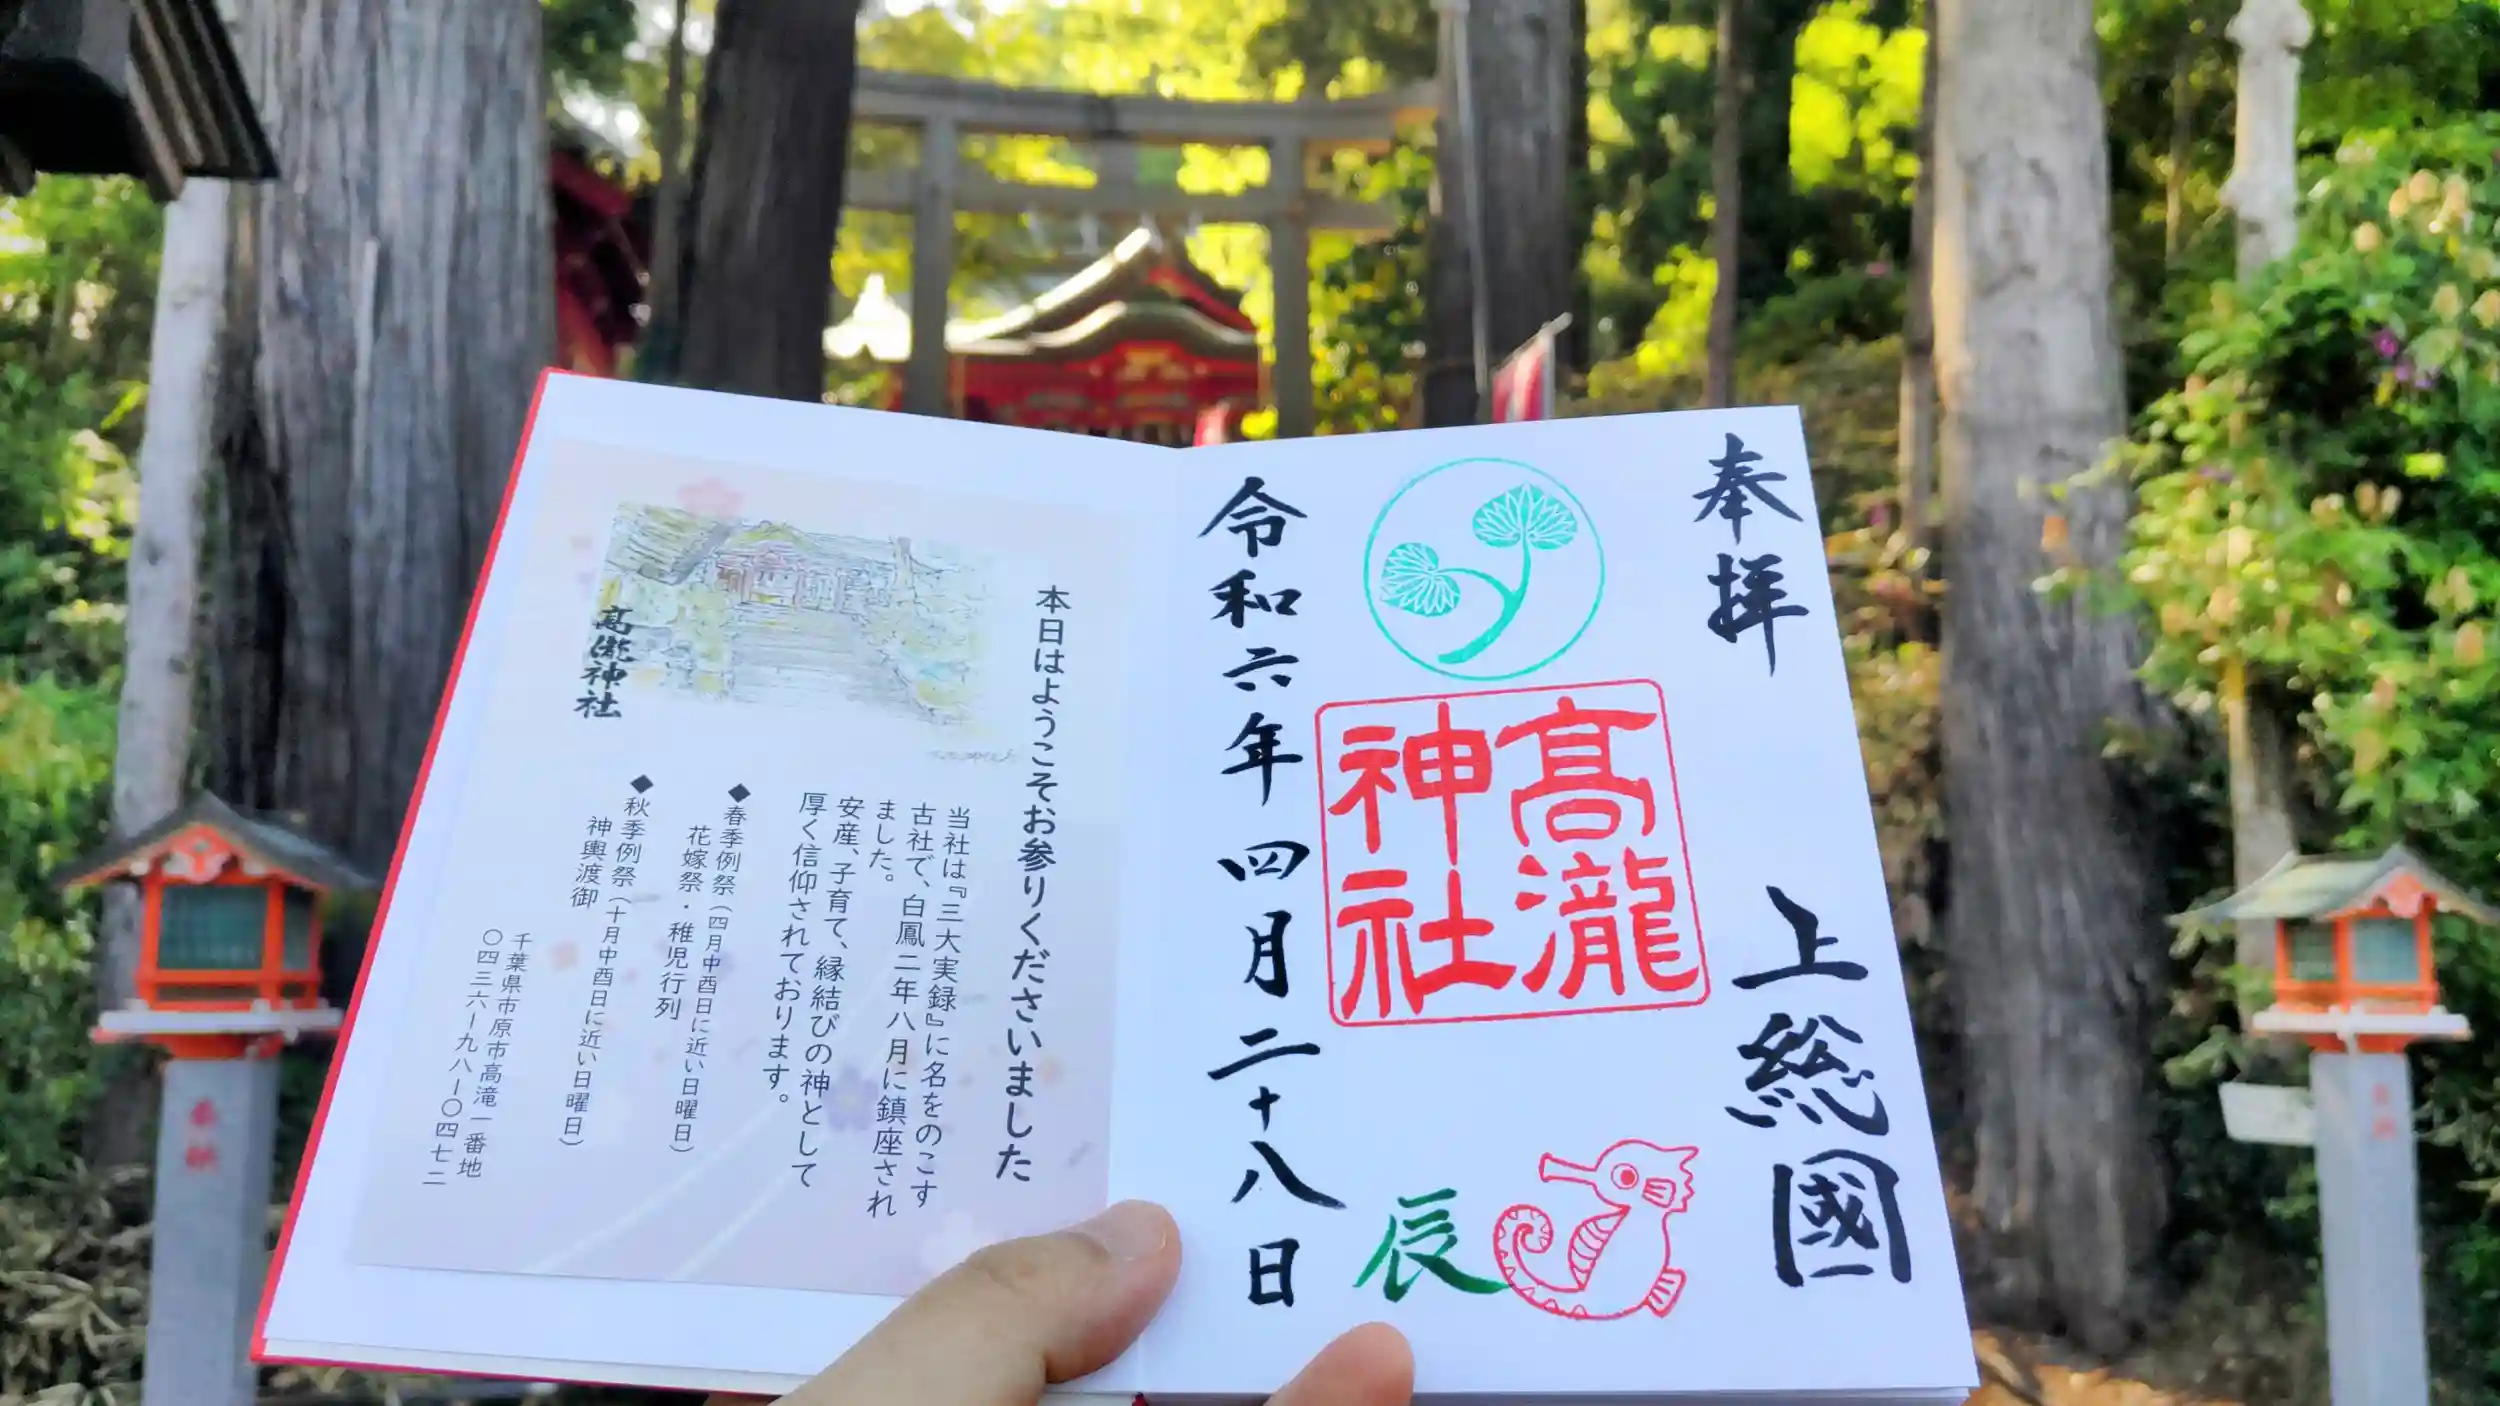 奉拝
上総國
髙瀧
神社
辰
令和六年四月二十八日
本日はようこそお参りくださいました
髙瀧神社
当社は『三大実録』に名をのこす
古社で、白鳳二年八月に鎮座され
ました。
安産、子育て、縁結びの神として
厚く信仰されております。
◆春季例祭（四月中酉日に近い日曜日）
花嫁祭・稚児行列
◆秋季例祭（十月中酉日に近い日曜日）
神輿渡御
千葉県市原市高滝一番地
〇四三六ー九八ー〇四七二